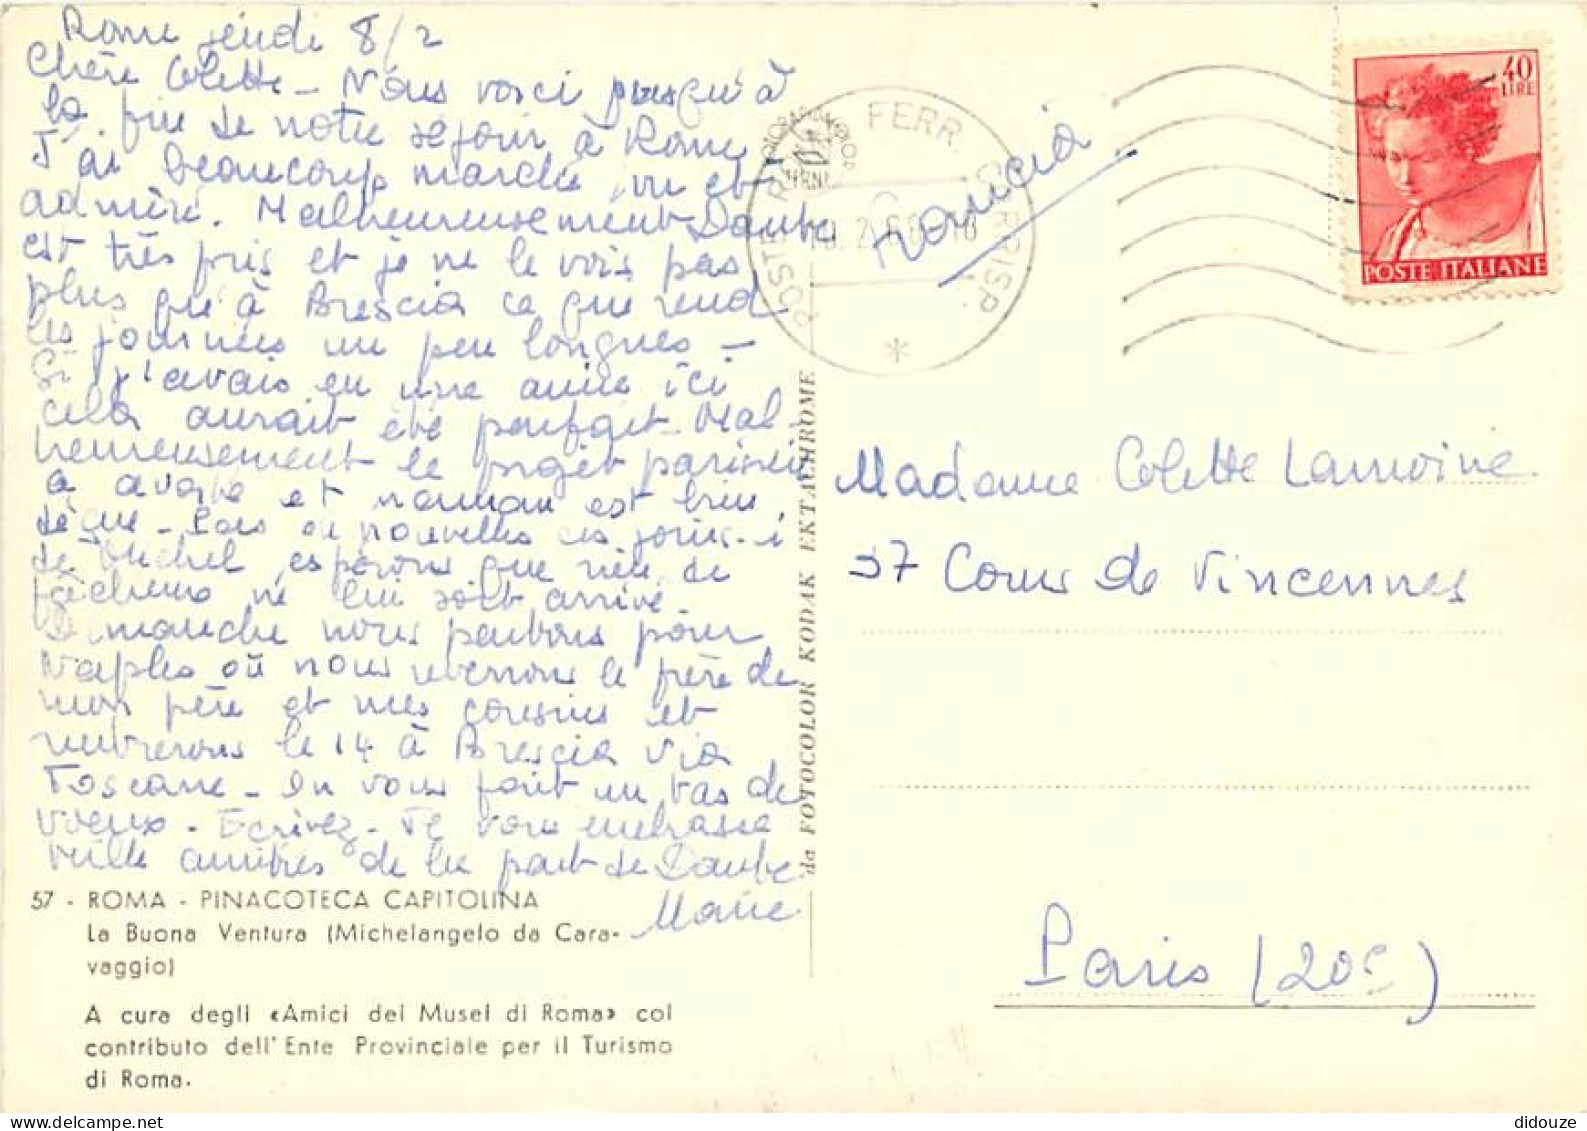 Rome jeudi 8/2
Chère Colette - Nous voici presqu'à
la fin de notre séjour à Rome
J'ai beaucoup marché, vu et
admiré. Malheureusement Dante
est très pris et je ne le vois pas
plus qu'à Brescia ce que rend
les journées un peu longues -
Si j'avais eu une amie ici
cela aurait été parfait. Mal-
heureusement le projet parisien
a avorté et maman est bien
déçue - Pas de nouvelles ces jours-ci
de Michel, espérons que rien de
fâcheux ne lui soit arrivé.
Dimanche nous partons pour
Naples où nous verrons le frère de
mon père et mes cousins et
rentrerons le 14 à Brescia via
Toscane - On vous fait un tas de
voeux - Ecrivez - Je vous embrasse
mille amitiés de la part de Dante
Marie
57 - ROMA - PINACOTECA CAPITOLINA
La Buona Ventura (Michelangelo da Cara-
vaggio)
A cura degli «Amici dei Musei di Roma» col
contributo dell'Ente Provinciale per il Turismo
di Roma.
da FOTOCOLOR KODAK EKTACHROME
POSTE FERR. CORRISP.
Francia
40
LIRE
POSTE ITALIANE
Madame Colette Lamoine
37 Cours de Vincennes
Paris (20e)
didouze